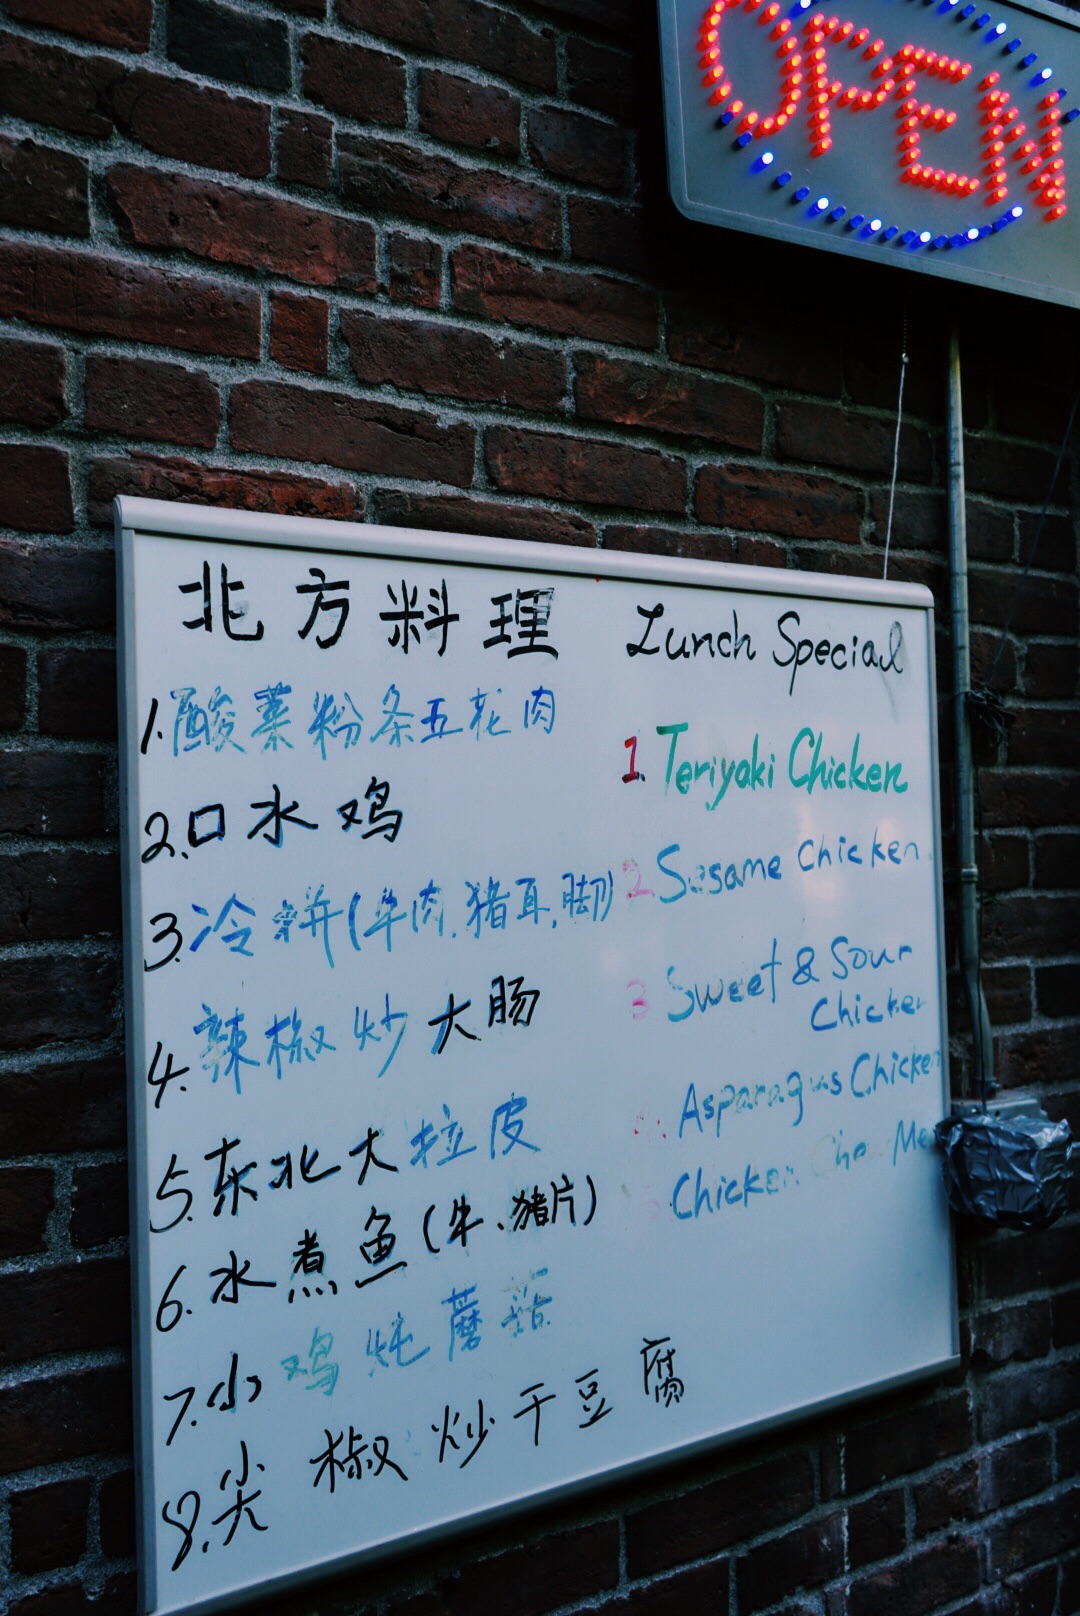 OPEN
北方料理
1. 酸菜粉条五花肉
2. 口水鸡
3. 冷拼(牛肉.猪耳,脚)
4. 辣椒炒大肠
5. 东北大拉皮
6. 水煮鱼(牛、猪片)
7. 小鸡炖蘑菇
8. 尖椒炒干豆腐
Lunch Special
1. Teriyaki Chicken
2. Sesame Chicken
3 Sweet & Sour
Chicken
4. Asparagus Chicken
5. Chicken Chow Me